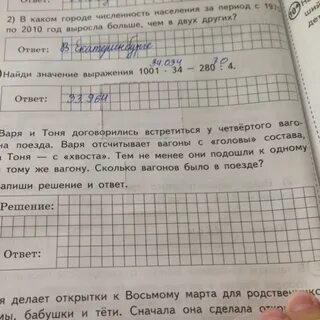 2) В каком городе численность населения за период с 197
по 2010 год выросла больше, чем в двух других?
Ответ: В Екатеринбурге
34.034 70
Найди значение выражения 1001 · 34 – 280 : 4.
Ответ: 33.964
Варя и Тоня договорились встретиться у четвёртого ваго-
на поезда. Варя отсчитывает вагоны с «головы» состава,
Тоня — с «хвоста». Тем не менее они подошли к одному
тому же вагону. Сколько вагонов было в поезде?
апиши решение и ответ.
Решение:
Ответ:
я делает открытки к Восьмому марта для родственник
мы, бабушки и тёти. Сначала она сделала откр